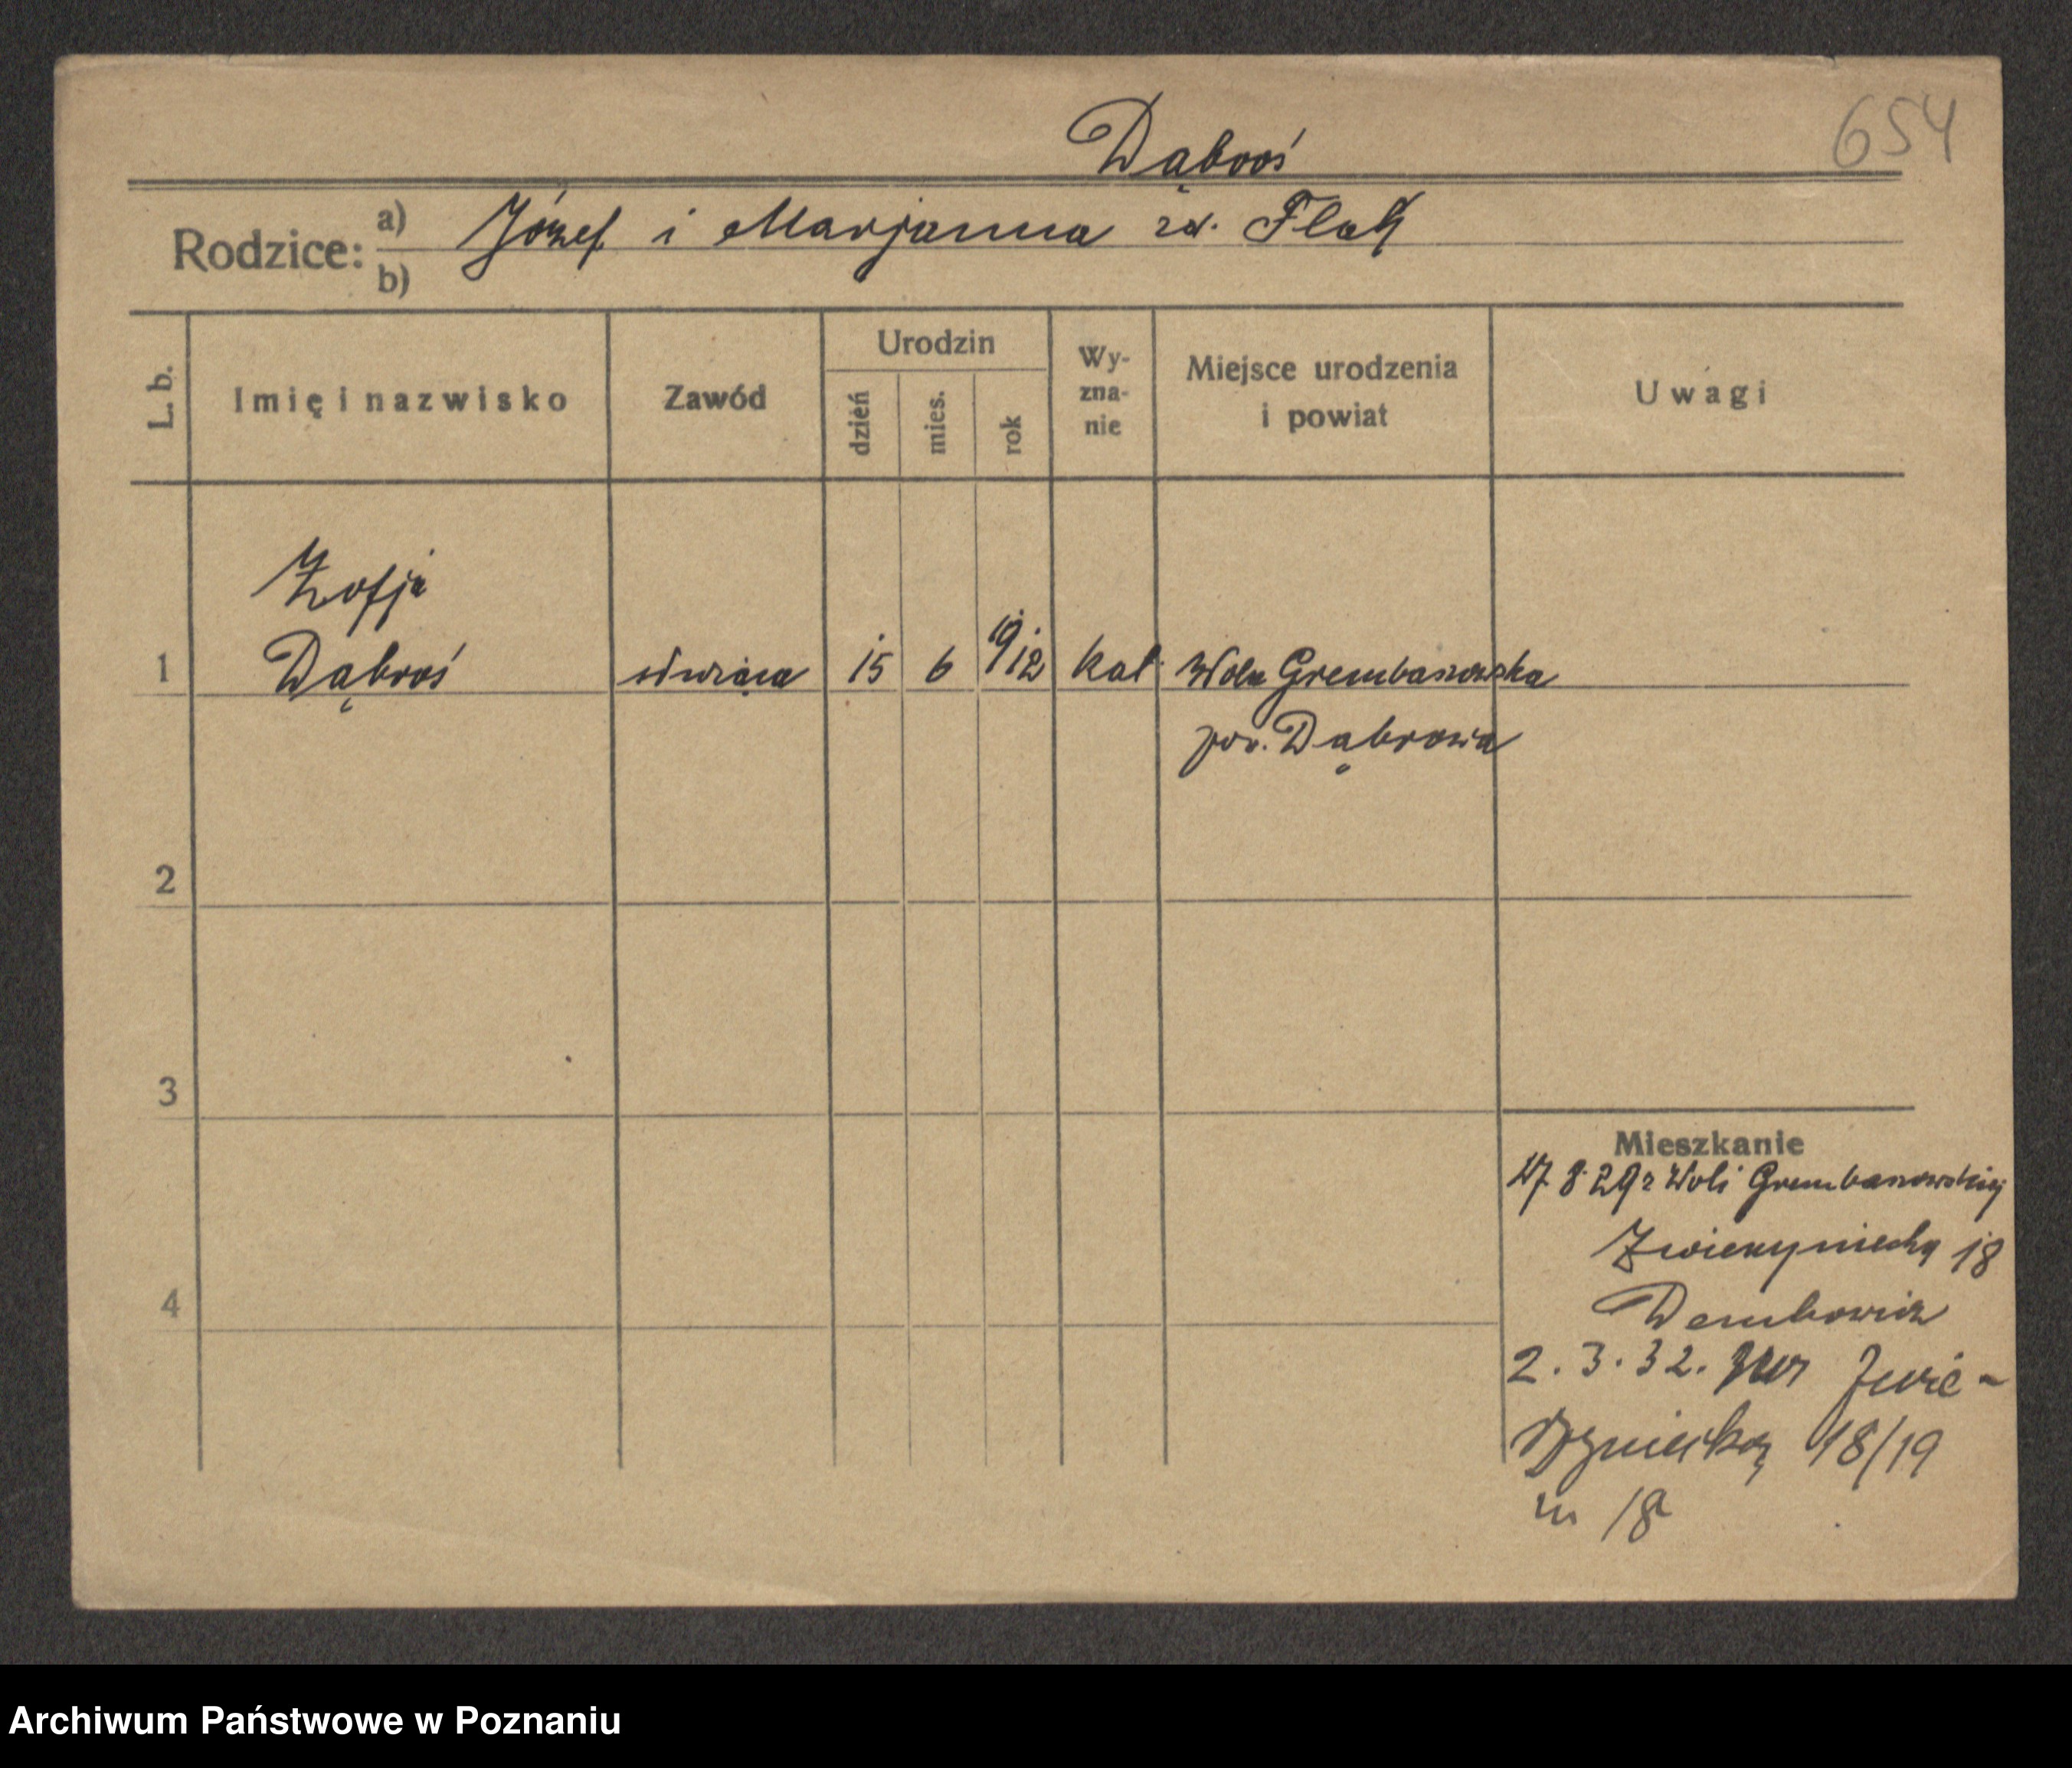 Dąbroś
654
Rodzice: a) Józef i Marjanna zd. Flak
b)
L. b.
Imię i nazwisko
Zawód
Urodzin
dzień
mies.
rok
Wy-
zna-
nie
Miejsce urodzenia
i powiat
Uwagi
Zofja
1 Dąbroś służąca 15 6 1912 kat. Wola Grembasowska
pow. Dąbrowa
2
3
4
Mieszkanie
17.8.29 z Woli Grembasowskiej
Zwierzyniecka 18
Dembowicz
2.3.32. Zwie-
rzyniecką 18/19
m 18
Archiwum Państwowe w Poznaniu